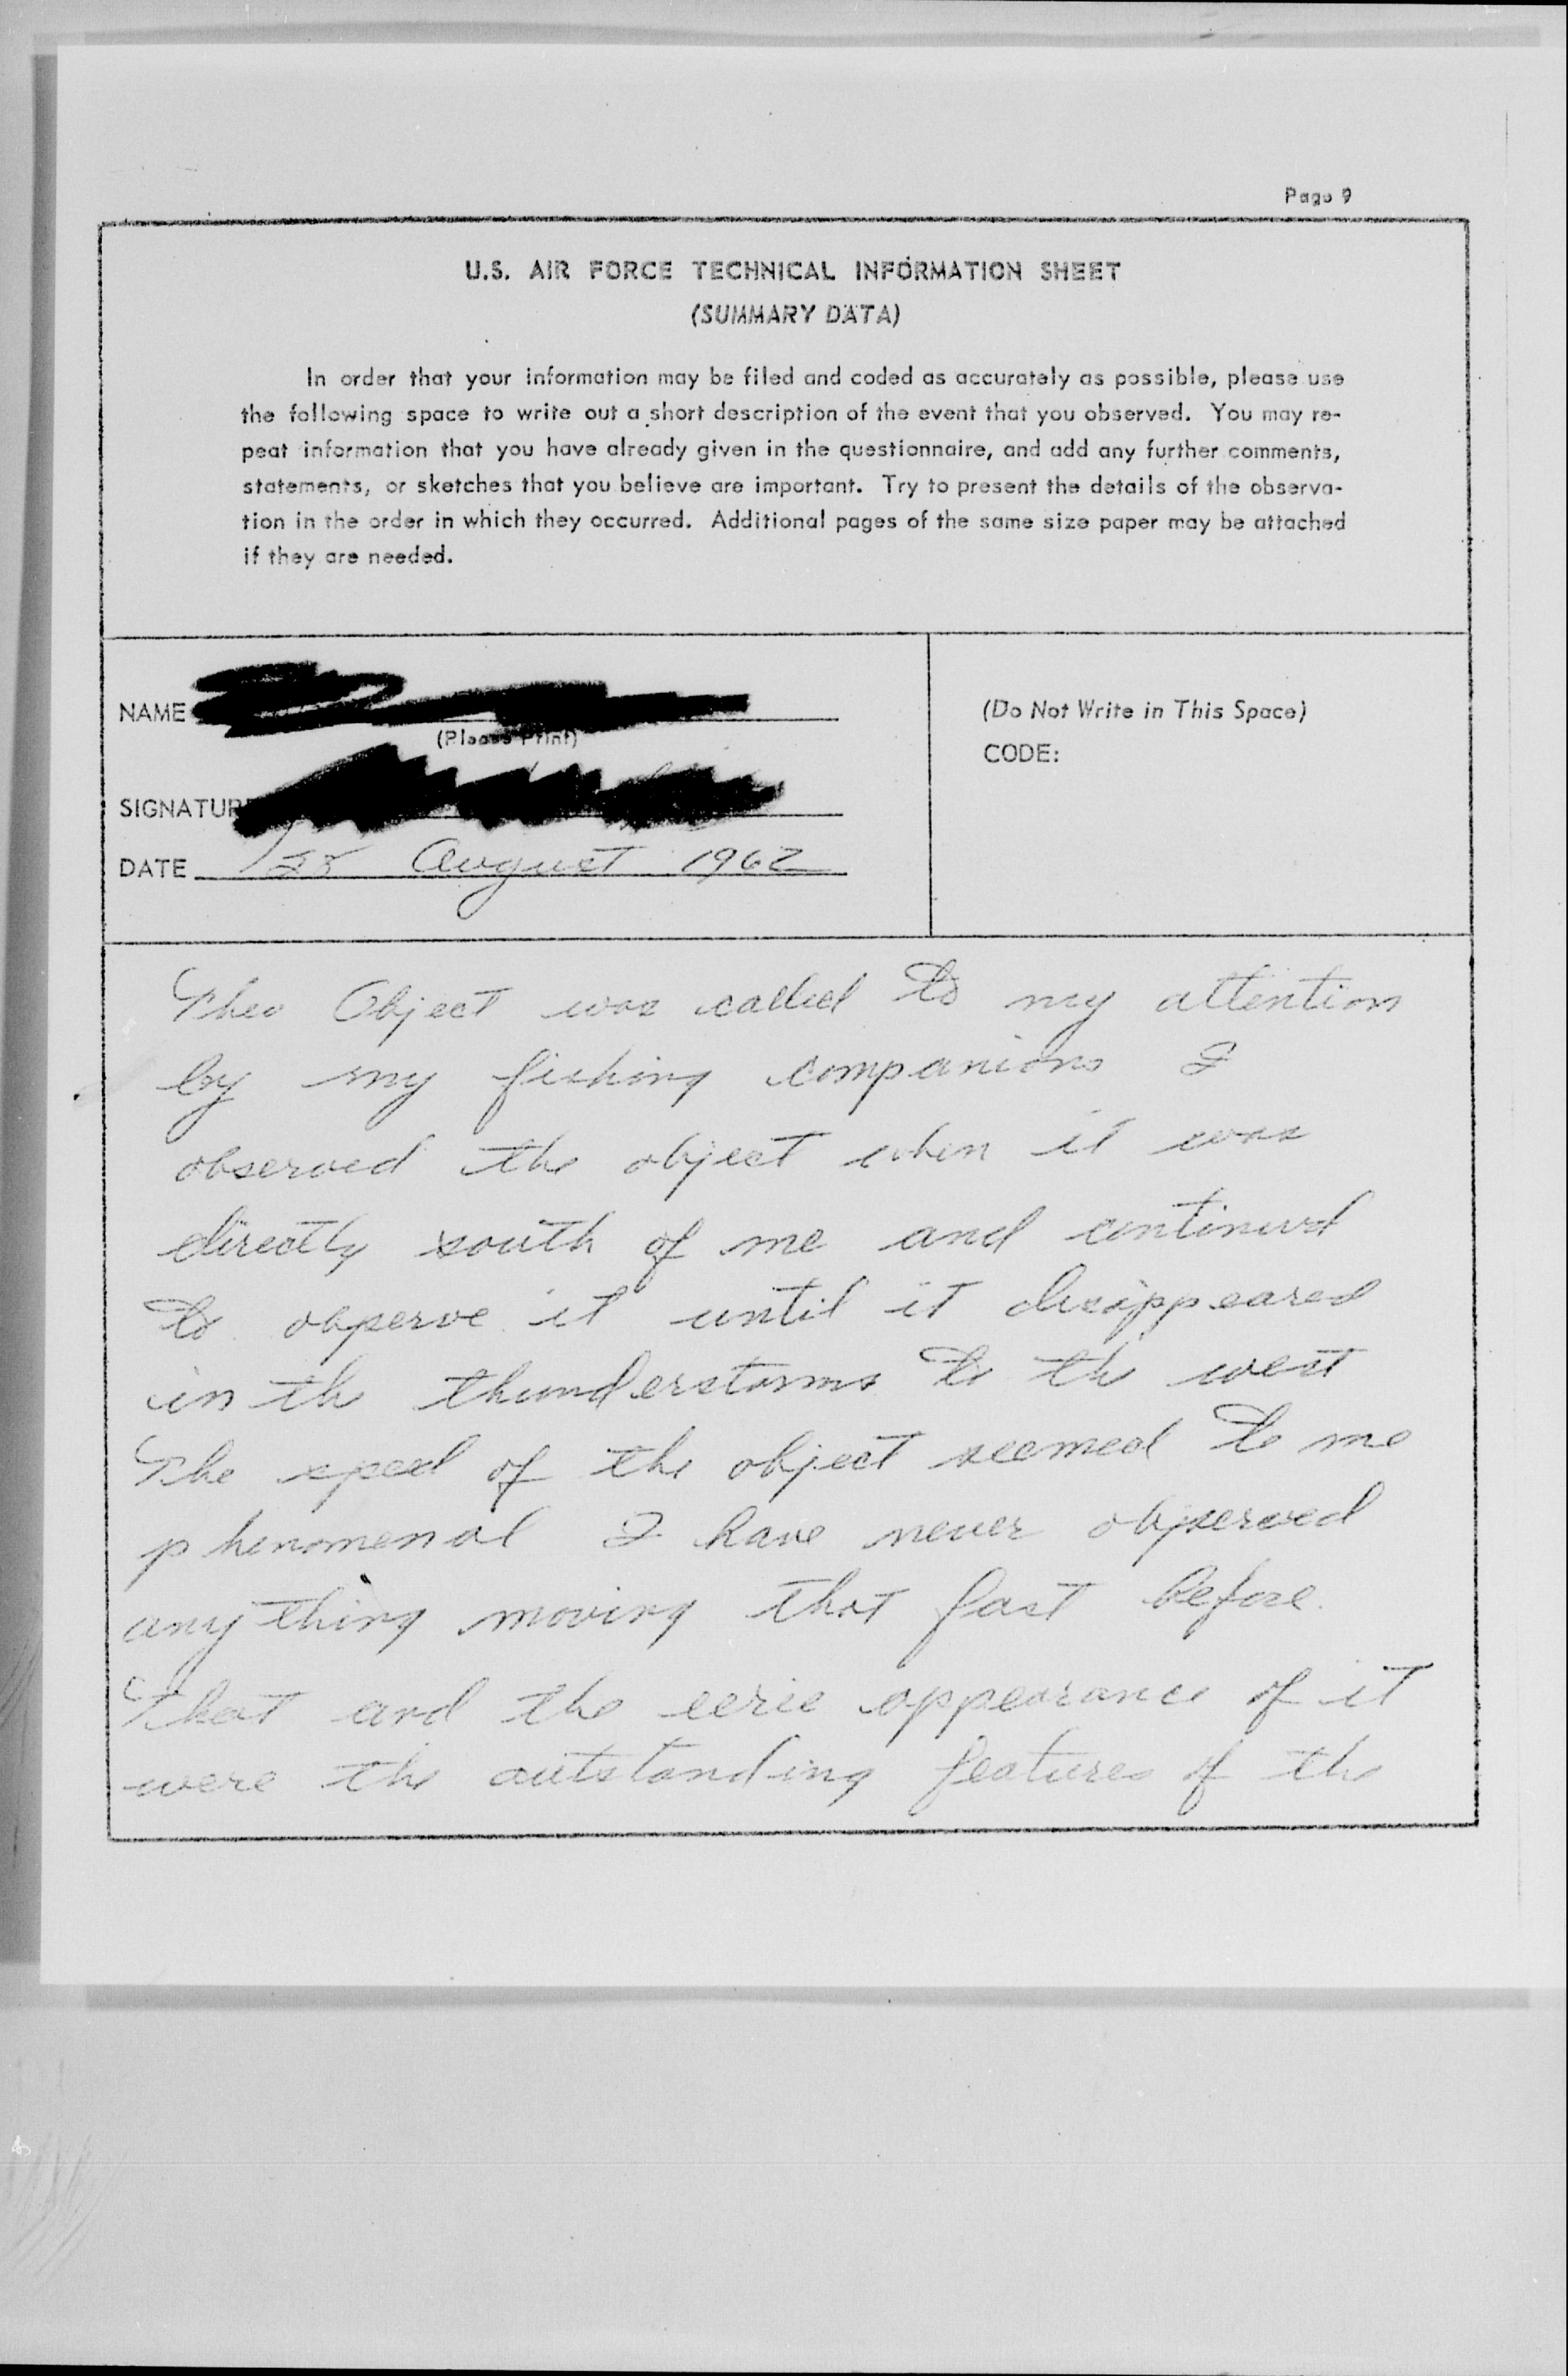 Page 9
U.S. AIR FORCE TECHNICAL INFORMATION SHEET
(SUMMARY DATA)
In order that your information may be filed and coded as accurately as possible, please use
the following space to write out a short description of the event that you observed. You may re-
peat information that you have already given in the questionnaire, and add any further comments,
statements, or sketches that you believe are important. Try to present the details of the observa-
tion in the order in which they occurred. Additional pages of the same size paper may be attached
if they are needed.
NAME
(Please Print)
(Do Not Write in This Space)
CODE:
SIGNATURE
DATE 28 August 1962
The Object was called to my attention
by my fishing companions I
observed the object when it was
directly south of me and continued
to observe it until it disappeared
in the thunderstorms to the west
The speed of the object seemed to me
phenomenal I have never observed
anything moving that fast before.
That and the eerie appearance of it
were the outstanding features of the